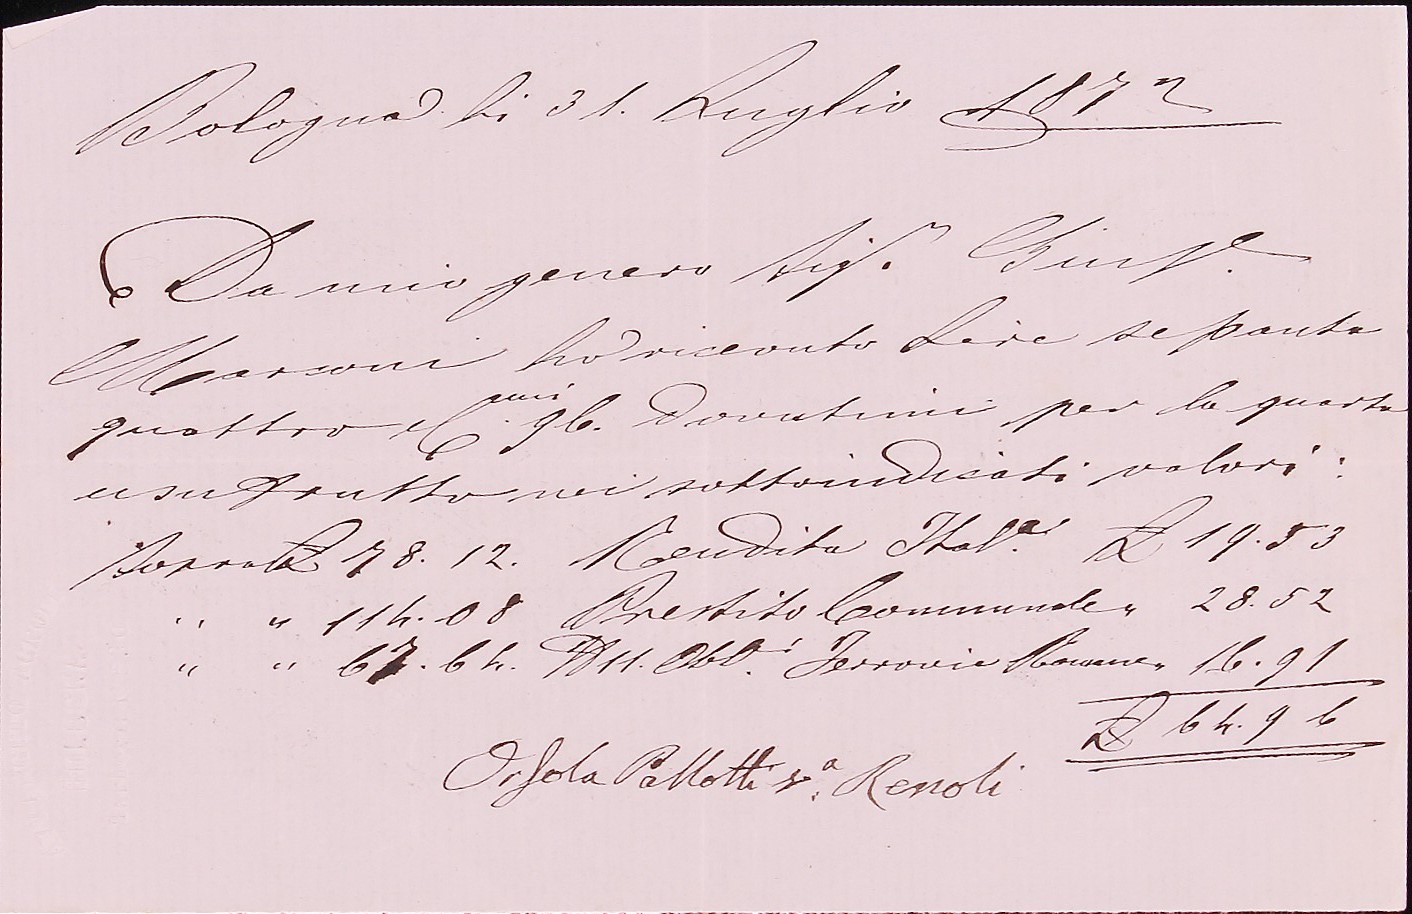 Bologna li 31. Luglio 1872
Da mio genero Sig.r Giusp.e
Marconi ho ricevuto Lire sessanta
quattro e C.mi 96. dovutimi per la quarta
usufrutto nei sottoindicati valori:
Sopra £ 78.12. Rendita Ital.a £ 19.53
" " 114.08 Prestito Communale " 28.52
" " 67.64. N 11. Obb.i Ferrovie Romane " 16.91
£ 64.96
Orsola Pallotti v.a Renoli